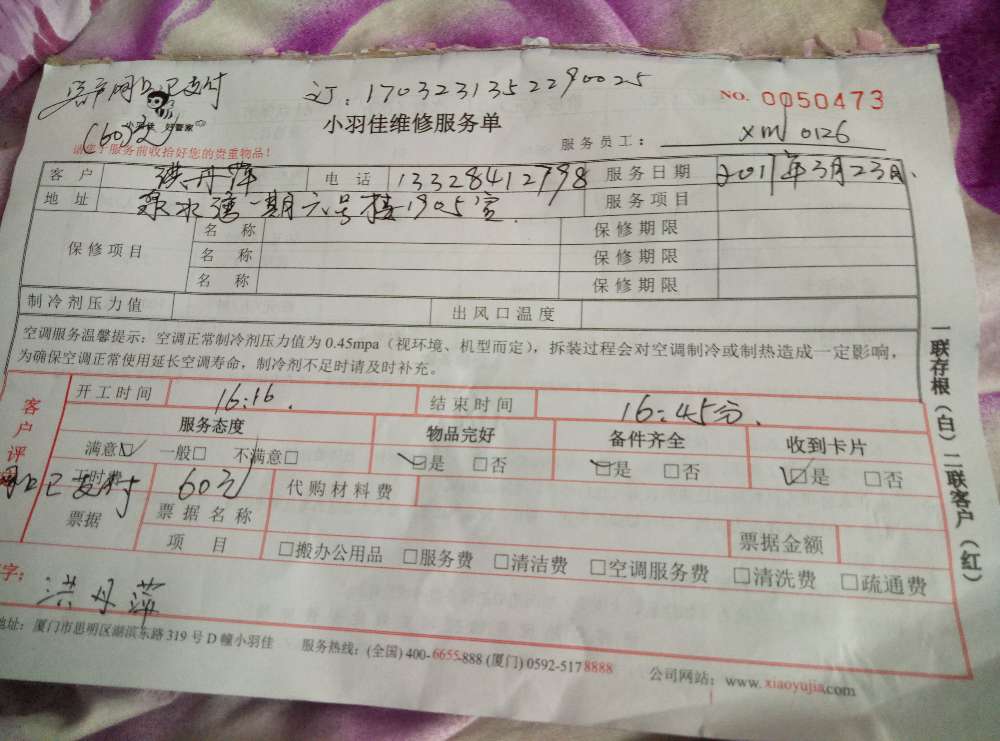 网上已支付 订:17032313522290025 NO. 0050473
(60元) 小羽佳 好管家 小羽佳维修服务单 服务员工: xm 0126
请您于服务前收拾好您的贵重物品!
客户 洪丹萍 电话 13328412798 服务日期 2017年3月23日
地址 一期六号楼1905室 服务项目
保修项目 名称 保修期限
名称 保修期限
名称 保修期限
制冷剂压力值 出风口温度
空调服务温馨提示:空调正常制冷剂压力值为 0.45mpa(视环境、机型而定),拆装过程会对空调制冷或制热造成一定影响,
为确保空调正常使用延长空调寿命,制冷剂不足时请及时补充。
客户评
开工时间 16:16. 结束时间 16:45分.
服务态度 物品完好 备件齐全 收到卡片
满意☑ 一般□ 不满意□ ☑是 □否 ☑是 □否 ☑是 □否
工时费 已支付 60元 代购材料费
票据 票据名称 票据金额
项目 □搬办公用品 □服务费 □清洁费 □空调服务费 □清洗费 □疏通费
字: 洪丹萍
地址:厦门市思明区湖滨东路 319 号 D 幢小羽佳 服务热线:(全国) 400-6655-888 (厦门) 0592-5178888 公司网站:www.xiaoyujia.com
一联存根(白)二联客户(红)